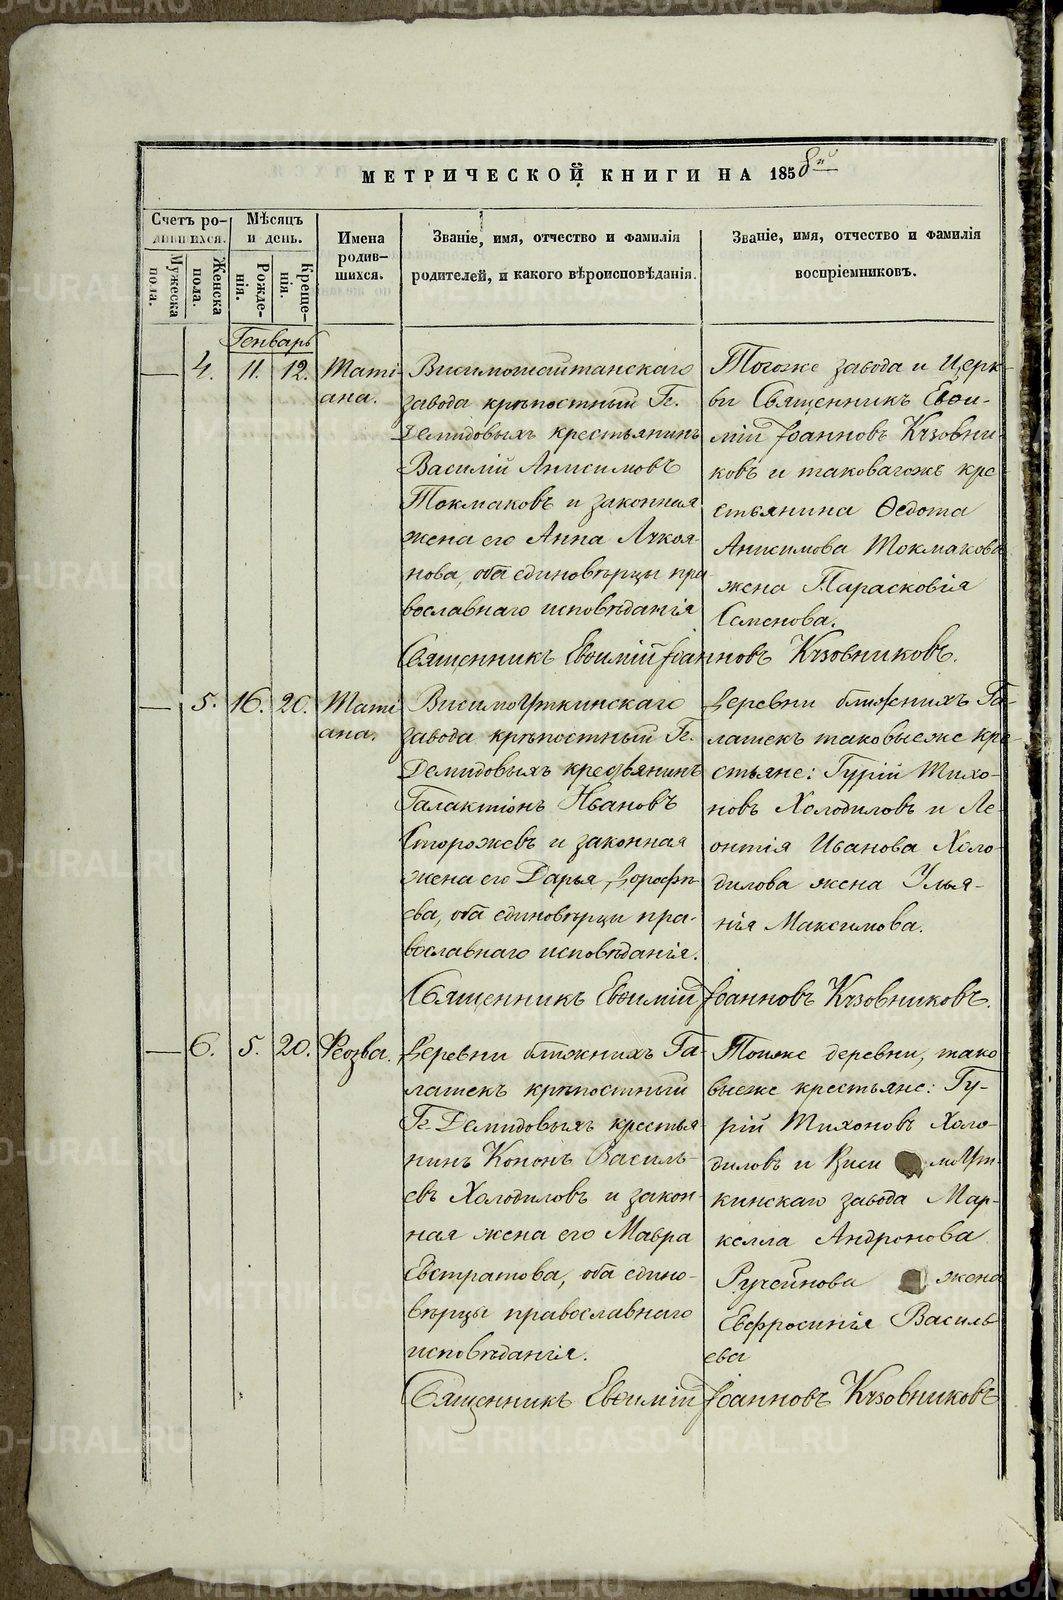 МЕТРИЧЕСКОЙ КНИГИ НА 1858й
Счетъ ро-
дившихся.
Мѣсяцъ
и день.
Имена
родив-
шихся.
Званіе, имя, отчество и фамилія
родителей, и какого вѣроисповѣданія.
Званіе, имя, отчество и фамилія
воспріемниковъ.
Мужеска
пола.
Женска
пола.
Рожде-
нія.
Креще-
нія.
Генварь
— 4. 11. 12. Тати-
ана.
Висимошайтанскаго
завода крѣпостный Гг.
Демидовыхъ крестьянинъ
Василій Анисимовъ
Токмаковъ и законная
жена его Анна Лукоя-
нова, оба единовѣрцы пра-
вославнаго исповѣданія
Тогоже завода и Церк-
ви Священникъ Евѳи-
мій Іоанновъ Кузовни-
ковъ и таковагожъ кре-
стьянина Ѳедота
Анисимова Токмакова
жена Парасковія
Семенова.
Священникъ Евѳимій Іоанновъ Кузовниковъ.
— 5. 16. 20. Тати-
ана.
ВисимоУткинскаго
завода крѣпостный Гг.
Демидовыхъ крестьянинъ
Галактіонъ Ивановъ
Сторожевъ и законная
жена его Дарья Дорофѣ-
ева, оба единовѣрцы пра-
вославнаго исповѣданія.
Деревни ближнихъ Га-
лашекъ таковыеже кре-
стьяне: Гурій Тихо-
новъ Холодиловъ и Ле-
онтія Иванова Холо-
дилова жена Улья-
нія Максимова.
Священникъ Евѳимій Іоанновъ Кузовниковъ.
— 6. 5. 20. Феозва.
Деревни ближнихъ Га-
лашекъ крѣпостный
Гг. Демидовыхъ крестья-
нинъ Кононъ Василь-
евъ Холодиловъ и закон-
ная жена его Мавра
Евстратова, оба едино-
вѣрцы православнаго
исповѣданія.
Тойже деревни, тако-
выеже крестьяне: Гу-
рій Тихоновъ Холо-
диловъ и Виси моУт-
кинскаго завода Мар-
келла Андронова
Ручейнова жена
Евфросинія Василь-
ева
Священникъ Евѳимій Іоанновъ Кузовниковъ
METRIKI.GASO-URAL.RU